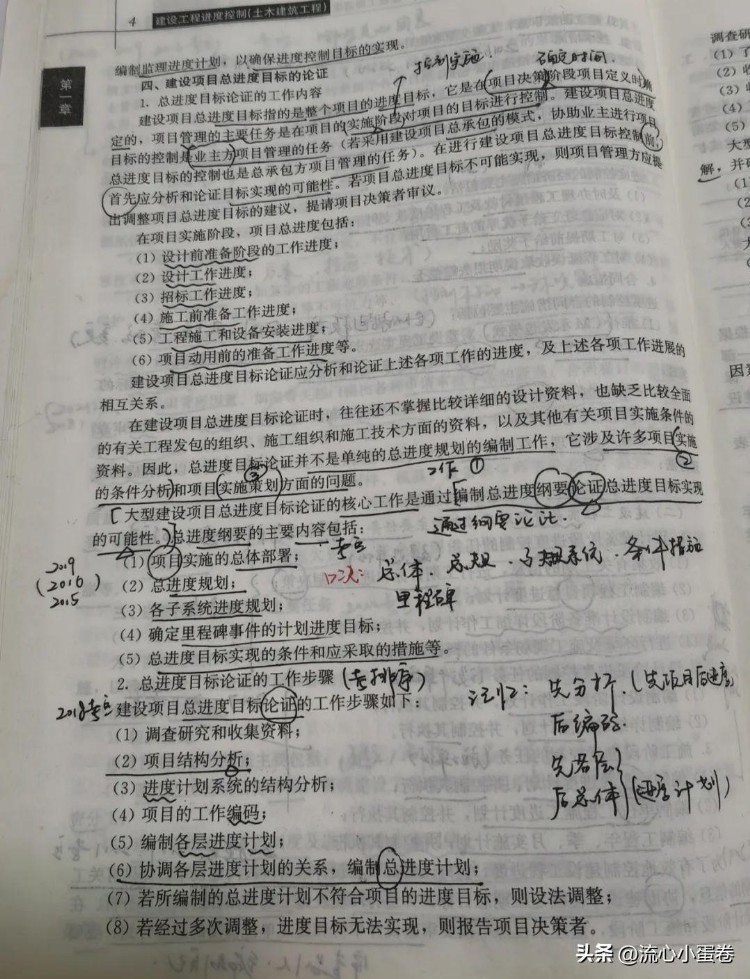 4 建设工程进度控制(土木建筑工程)
第一章
编制监理进度计划，以确保进度控制目标的实现。
控制实施
确定时间.
四、建设项目总进度目标的论证
1. 总进度目标论证的工作内容
建设项目总进度目标指的是整个项目的进度目标，它是在项目决策阶段项目定义时确
定的，项目管理的主要任务是在项目的实施阶段对项目的目标进行控制。建设项目总进度
目标的控制是业主方项目管理的任务（若采用建设项目总承包的模式，协助业主进行项目
总进度目标的控制也是总承包方项目管理的任务）。在进行建设项目总进度目标控制前，
首先应分析和论证目标实现的可能性。若项目总进度目标不可能实现，则项目管理方应提
出调整项目总进度目标的建议，提请项目决策者审议。
在项目实施阶段，项目总进度包括：
(1) 设计前准备阶段的工作进度；
(2) 设计工作进度；
(3) 招标工作进度；
(4) 施工前准备工作进度；
(5) 工程施工和设备安装进度；
(6) 项目动用前的准备工作进度等。
建设项目总进度目标论证应分析和论证上述各项工作的进度，及上述各项工作进展的
相互关系。
在建设项目总进度目标论证时，往往还不掌握比较详细的设计资料，也缺乏比较全面
的有关工程发包的组织、施工组织和施工技术方面的资料，以及其他有关项目实施条件的
资料。因此，总进度目标论证并不是单纯的总进度规划的编制工作，它涉及许多项目实施
工作 ① ②
③
的条件分析和项目实施策划方面的问题。
大型建设项目总进度目标论证的核心工作是通过编制总进度纲要论证总进度目标实现
的可能性。总进度纲要的主要内容包括：
通过纲要论证.
2019
(2016
2015
(1) 项目实施的总体部署；
口决: 总体、总规、子规系统、条件措施
里程碑
(2) 总进度规划；
(3) 各子系统进度规划；
(4) 确定里程碑事件的计划进度目标；
(5) 总进度目标实现的条件和应采取的措施等。
2. 总进度目标论证的工作步骤 (考排序)
2018考 建设项目总进度目标论证的工作步骤如下：
记忆: 先分析.(先项目后进度)
后编码.
先各层
后总体 (进度计划)
(1) 调查研究和收集资料；
(2) 项目结构分析；
(3) 进度计划系统的结构分析；
(4) 项目的工作编码；
(5) 编制各层进度计划；
(6) 协调各层进度计划的关系，编制总进度计划；
(7) 若所编制的总进度计划不符合项目的进度目标，则设法调整；
(8) 若经过多次调整，进度目标无法实现，则报告项目决策者。
调查研
(1) 了
(2) 收
(3) 收
(4)
(5)
大型
解，并确
(1
(2
因素
头条 @流心小蛋卷